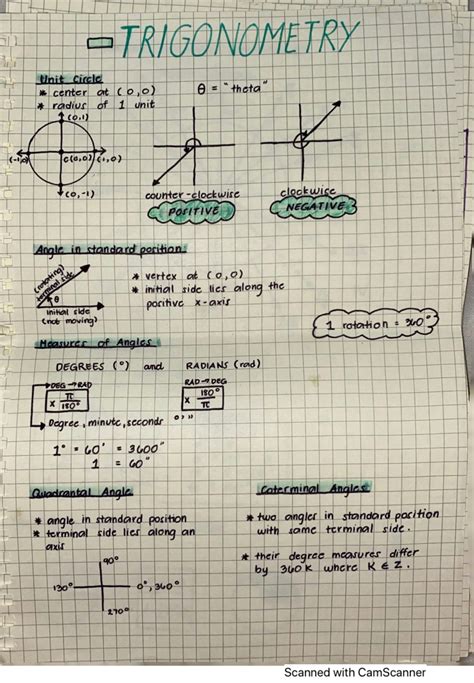 TRIGONOMETRY
Unit Circle
* center at (0,0)
* radius of 1 unit
θ = "theta"
(0,1)
(-1,0)
C(0,0)
(1,0)
(0,-1)
counter-clockwise
POSITIVE
clockwise
NEGATIVE
Angle in standard position:
(rotating)
terminal side
θ
initial side
(not moving)
* vertex at (0,0)
* initial side lies along the
positive x-axis
1 rotation = 360°
Measures of Angles
DEGREES (°) and RADIANS (rad)
DEG → RAD
x π
180°
RAD → DEG
x 180°
π
Degree, minute, seconds ° ' "
1° = 60' = 3600"
1 = 60"
Quadrantal Angle
* angle in standard position
* terminal side lies along an
axis
90°
130°
0°, 360°
270°
Coterminal Angles
* two angles in standard position
with same terminal side.
* their degree measures differ
by 360K where K ∈ Z.
Scanned with CamScanner